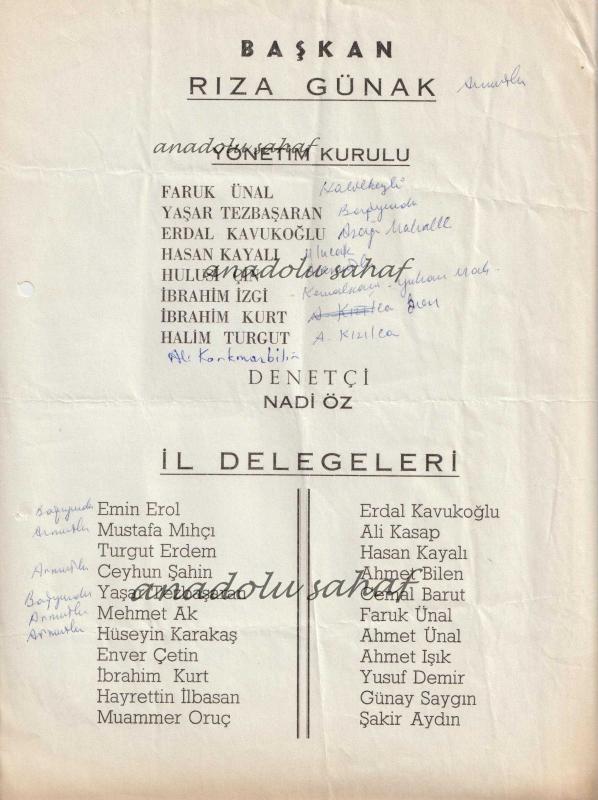 BAŞKAN
RIZA GÜNAK Armutlu
anadolu sahaf
YÖNETİM KURULU
FARUK ÜNAL
YAŞAR TEZBAŞARAN Bağyurdu
ERDAL KAVUKOĞLU Aşağı Mahalle
HASAN KAYALI Ulucak
HULUSİ ÇİN
anadolu sahaf
İBRAHİM İZGİ Yukarı Mah.
İBRAHİM KURT A. Kızılca
HALİM TURGUT A. Kızılca
Ali Korkmazbilin
DENETÇİ
NADİ ÖZ
İL DELEGELERİ
Bağyurdu Emin Erol
Armutlu Mustafa Mıhçı
Turgut Erdem
Armutlu Ceyhun Şahin
Bağyurdu Yaşar Tezbaşaran
anadolu sahaf
Armutlu Mehmet Ak
Armutlu Hüseyin Karakaş
Enver Çetin
İbrahim Kurt
Hayrettin İlbasan
Muammer Oruç
Erdal Kavukoğlu
Ali Kasap
Hasan Kayalı
Ahmet Bilen
Cemal Barut
Faruk Ünal
Ahmet Ünal
Ahmet Işık
Yusuf Demir
Günay Saygın
Şakir Aydın